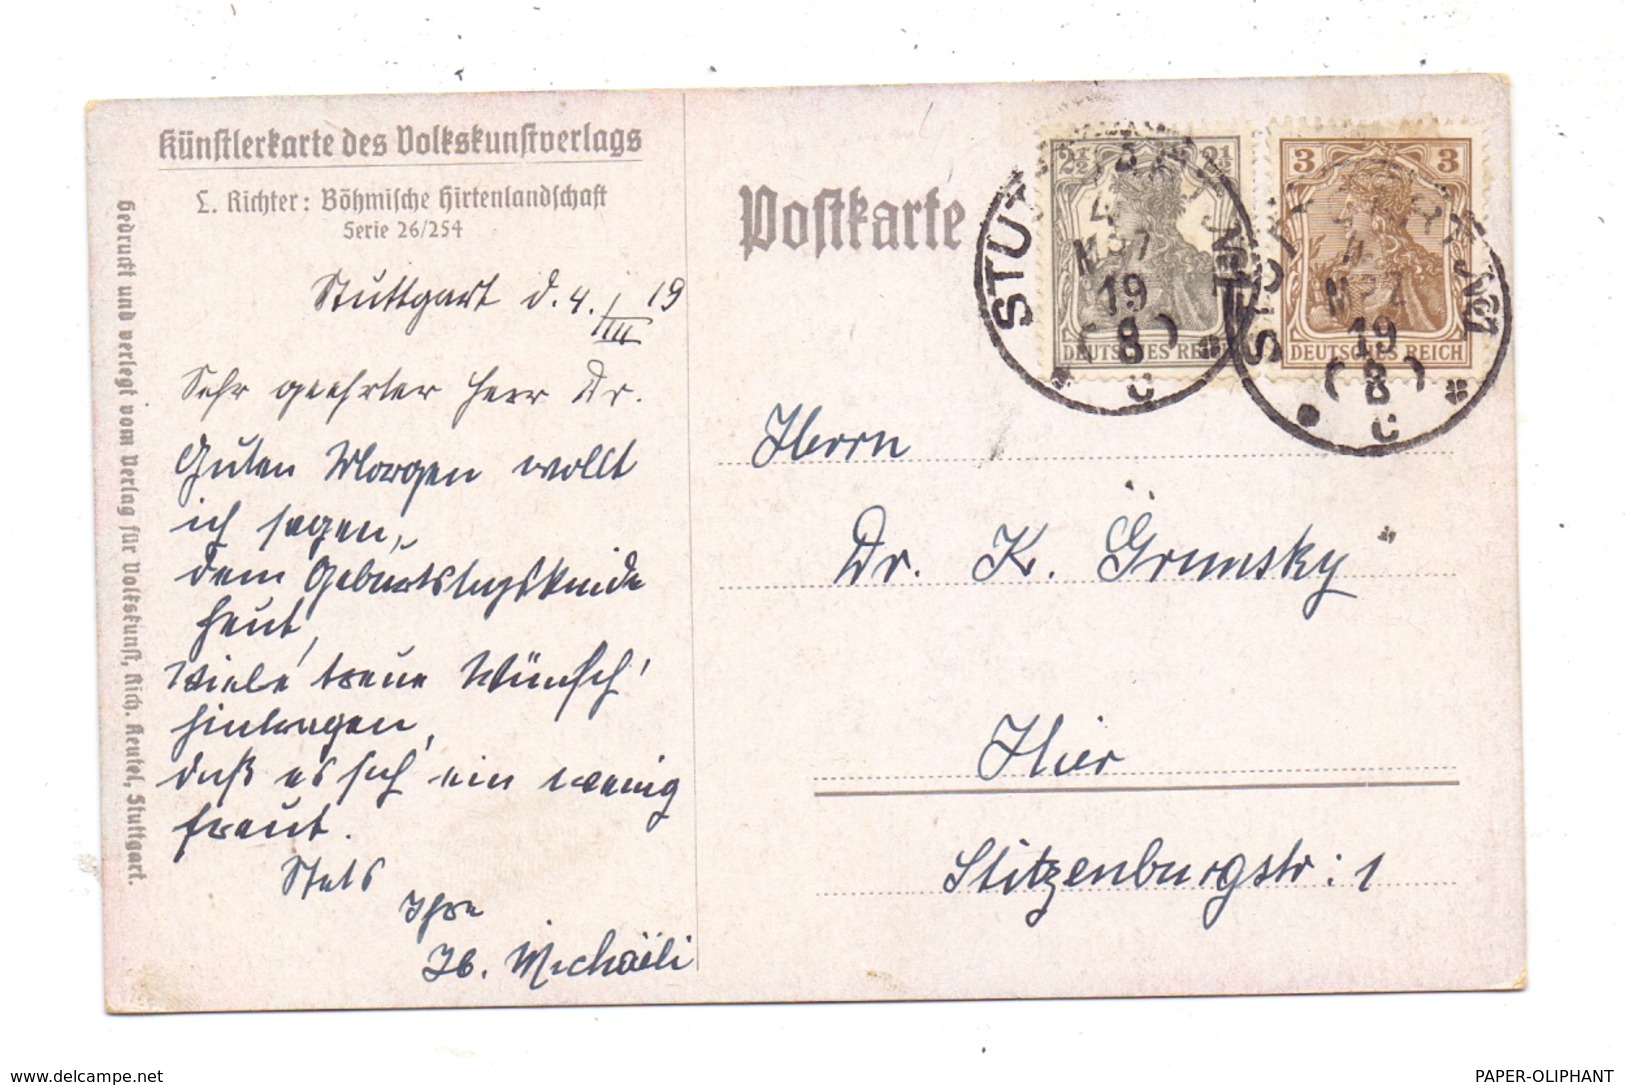 Künstlerkarte des Volkskunstverlags
L. Richter: Böhmische Hirtenlandschaft
Serie 26/254
Gedruckt und verlegt vom Verlag für Volkskunst, Rich. Keutel, Stuttgart.
Stuttgart d. 4. III 19
Sehr geehrter Herr Dr.
Guten Morgen wollt
ich sagen,
dem Geburtstagskinde
heut,
Viele treue Wünsch'
hintragen,
daß es sich ein wenig
freut.
Stets
Ihre
Michaëli
Postkarte
2½ 2½
DEUTSCHES REICH
3 3
DEUTSCHES REICH
STUTTGART
4
MRZ
19
8
c
STUTTGART
4
MRZ
19
8
c
Herrn
Dr. K. Grunsky
Hier
Stitzenburgstr: 1
www.delcampe.net
PAPER-OLIPHANT